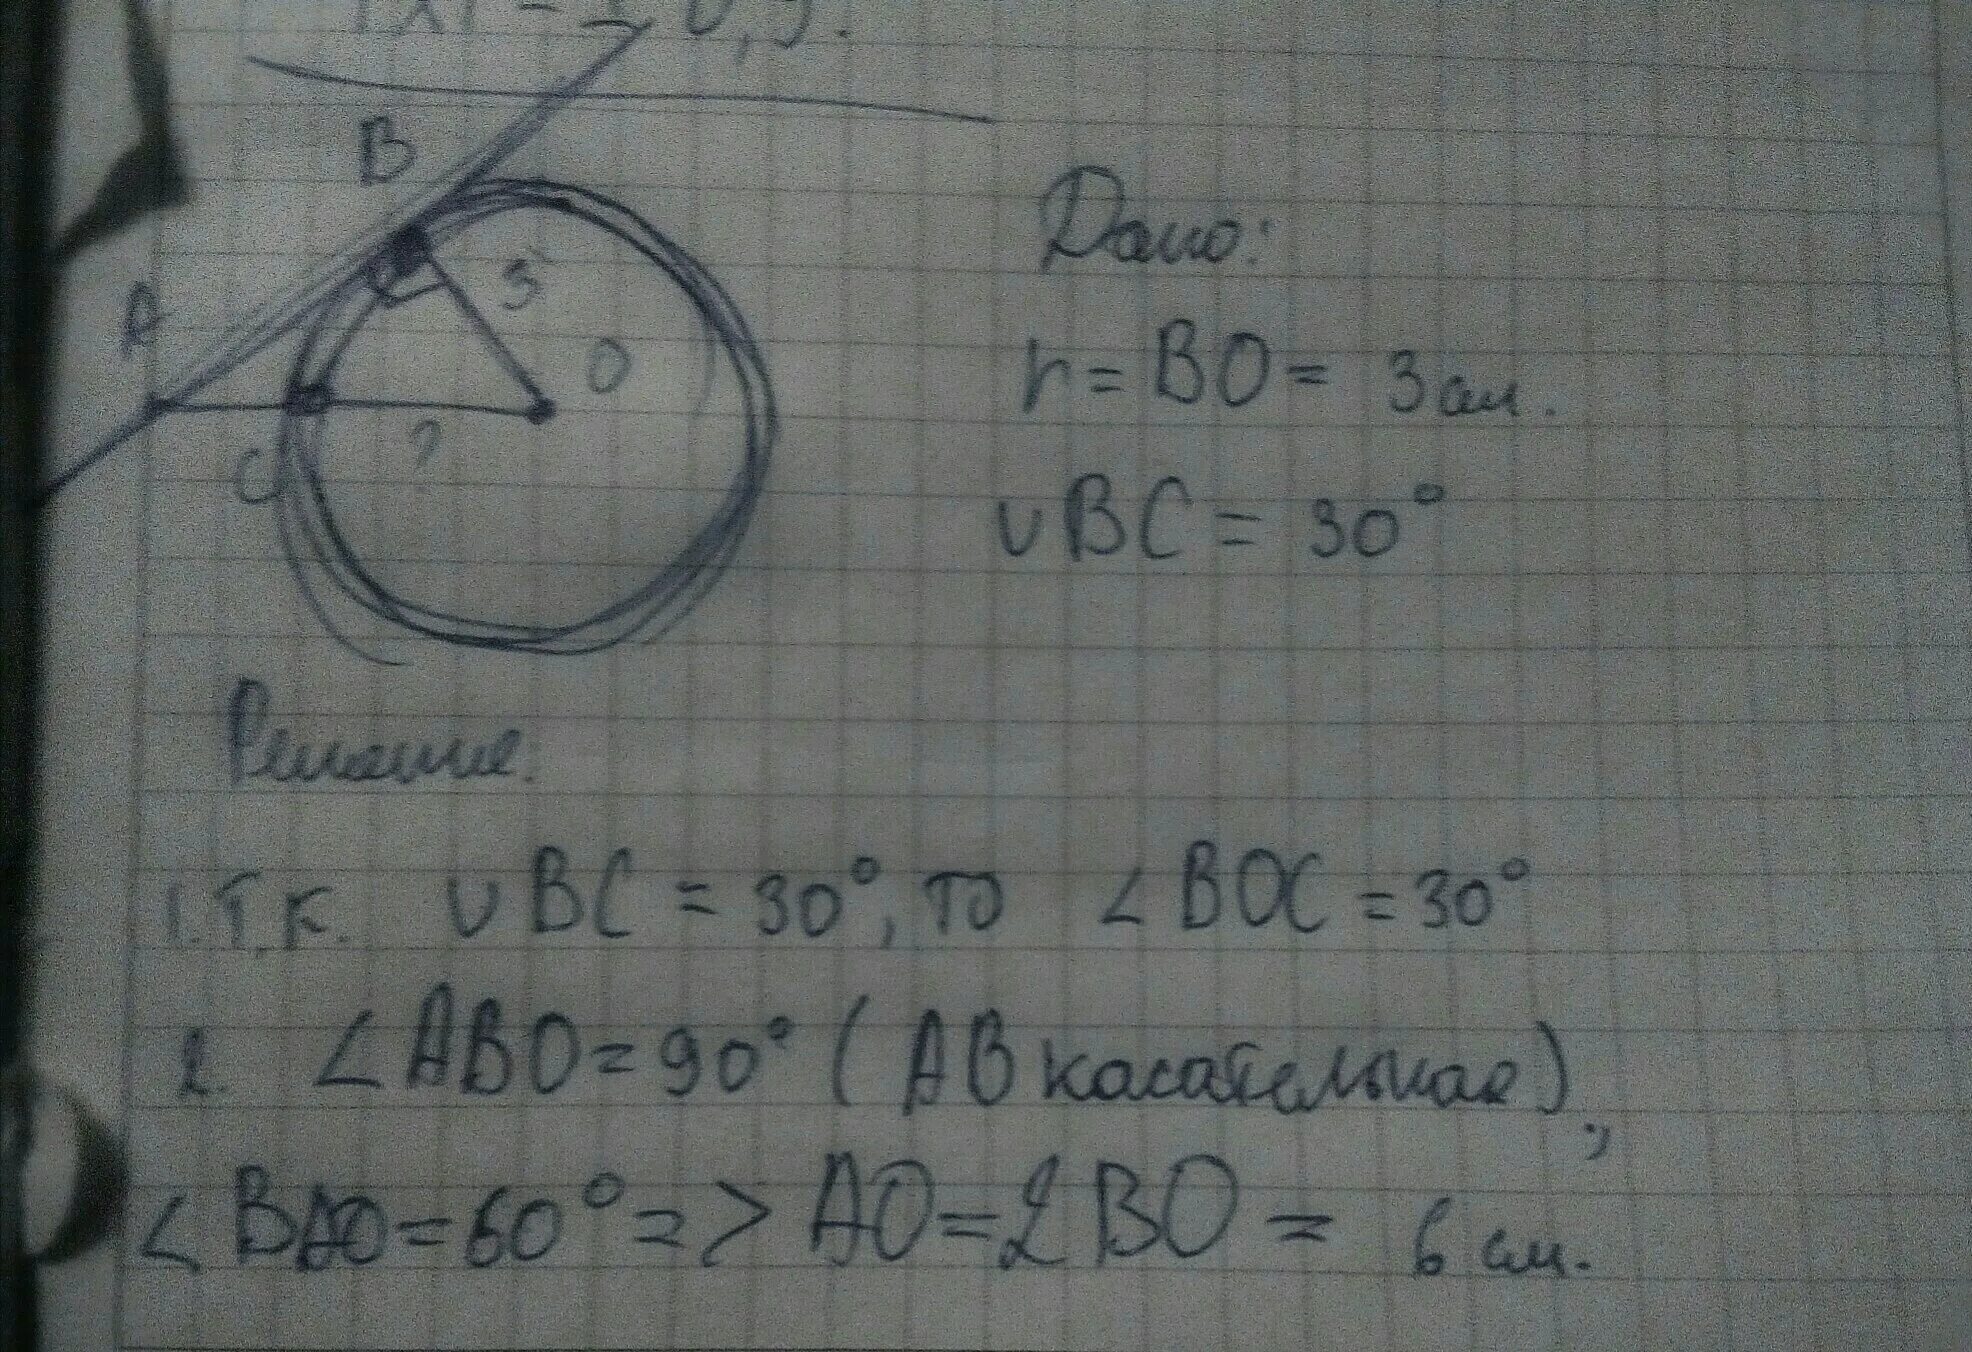 B
A
3
O
C
?
Дано:
r = BO = 3 см.
∪BC = 30°
Решение:
1. Т.к. ∪BC = 30°, то ∠BOC = 30°
2. ∠ABO = 90° (AB касательная),
∠BAO = 60° => AO = 2BO = 6 см.